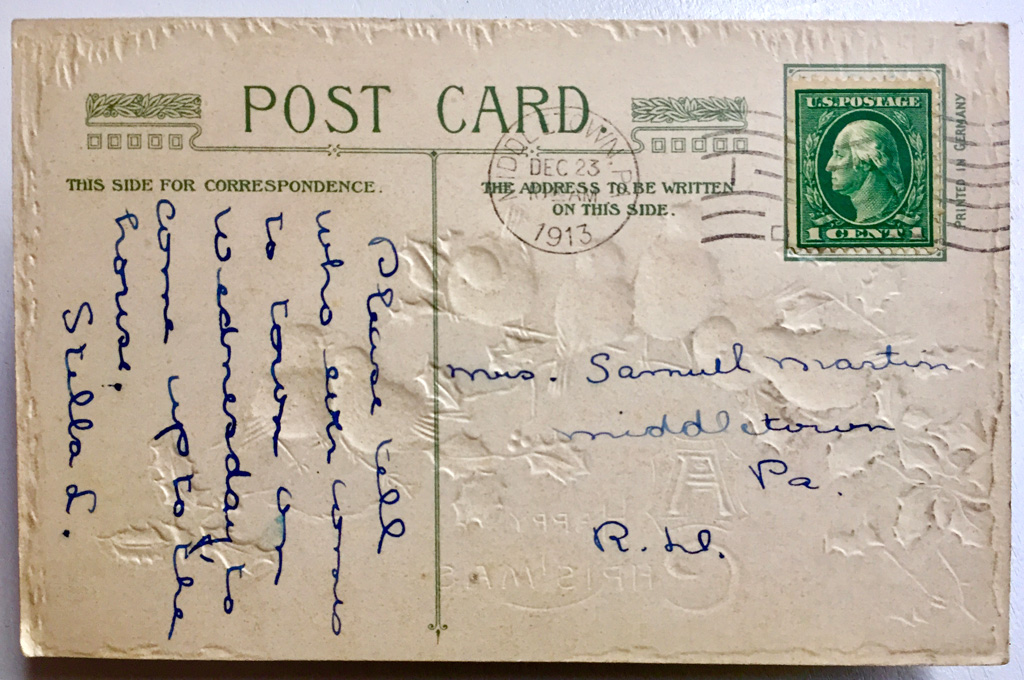 POST CARD
THIS SIDE FOR CORRESPONDENCE.
THE ADDRESS TO BE WRITTEN
ON THIS SIDE.
MIDDLETOWN, PA
DEC 23
AM
1913
U.S. POSTAGE
1 CENT 1
PRINTED IN GERMANY
Please tell
who ever comes
to town on
Wednesday to
come up to the
house.
Stella L.
Mrs. Samuel Martin
Middletown
Pa.
R.D.
A
HAPPY
CHRISTMAS